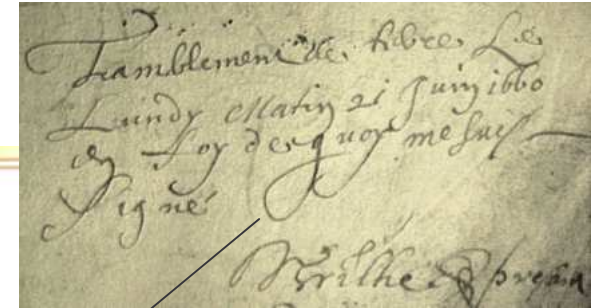 Tramblement de terre Le
Luindy Matin 21 Juin 1660
en Foy de quoy me suis
Signé